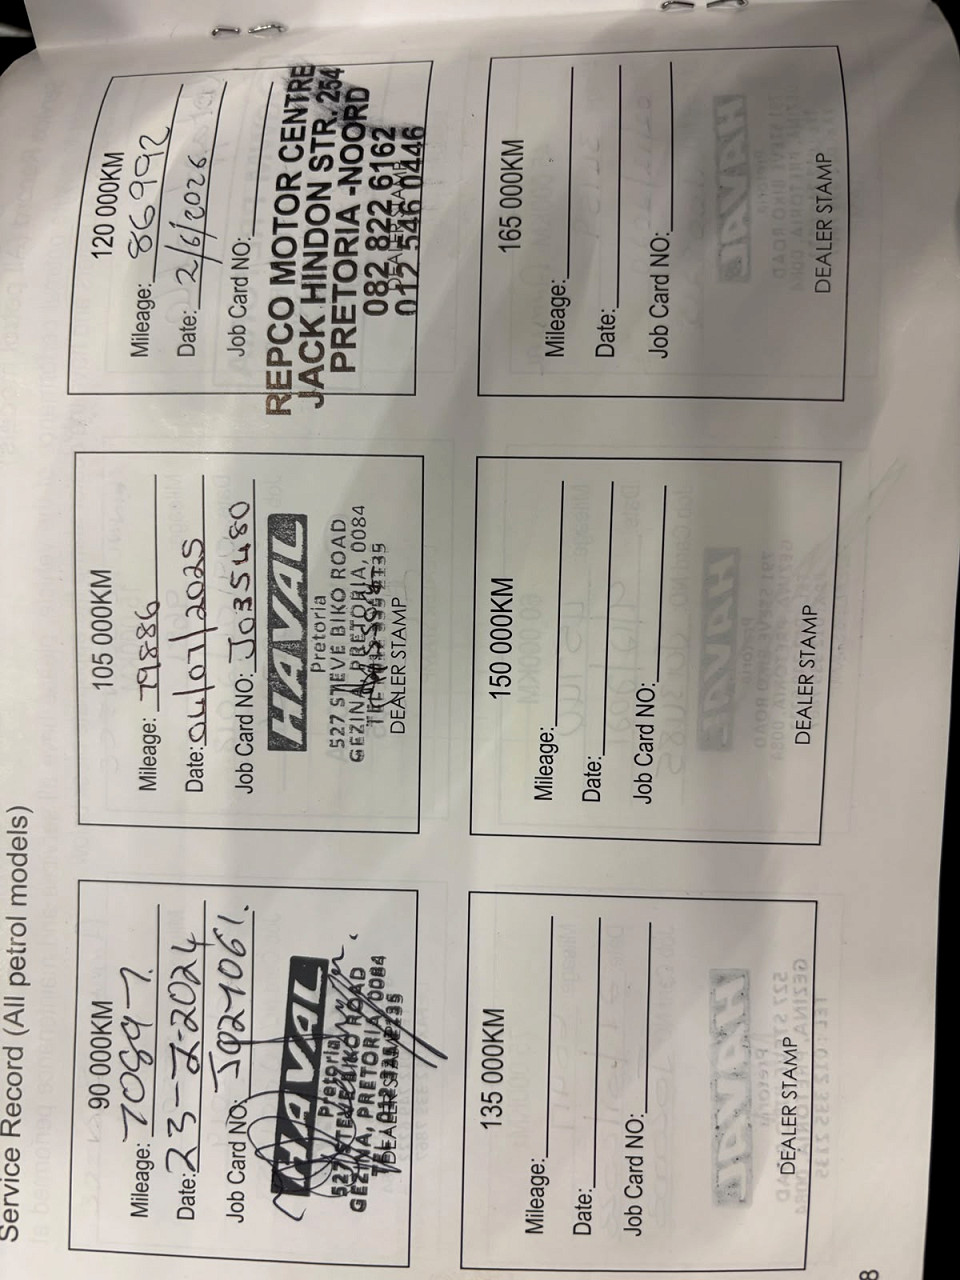 Service Record (All petrol models)
90 000KM
Mileage: 70897
Date: 23-7-2024
Job Card NO: J027061.
HAVAL
Pretoria
527 STEVE BIKO ROAD
GEZINA, PRETORIA, 0084
DEALER STAMP
105 000KM
Mileage: 79886
Date: 04/07/2025
Job Card NO: J035480
HAVAL
Pretoria
527 STEVE BIKO ROAD
GEZINA, PRETORIA, 0084
DEALER STAMP
120 000KM
Mileage: 86992
Date: 2/6/2026
Job Card NO:
REPCO MOTOR CENTRE
JACK HINDON STR. 254
PRETORIA -NOORD
082 822 6162
012 546 0446
DEALER STAMP
135 000KM
Mileage:
Date:
Job Card NO:
DEALER STAMP
150 000KM
Mileage:
Date:
Job Card NO:
DEALER STAMP
165 000KM
Mileage:
Date:
Job Card NO:
DEALER STAMP
8